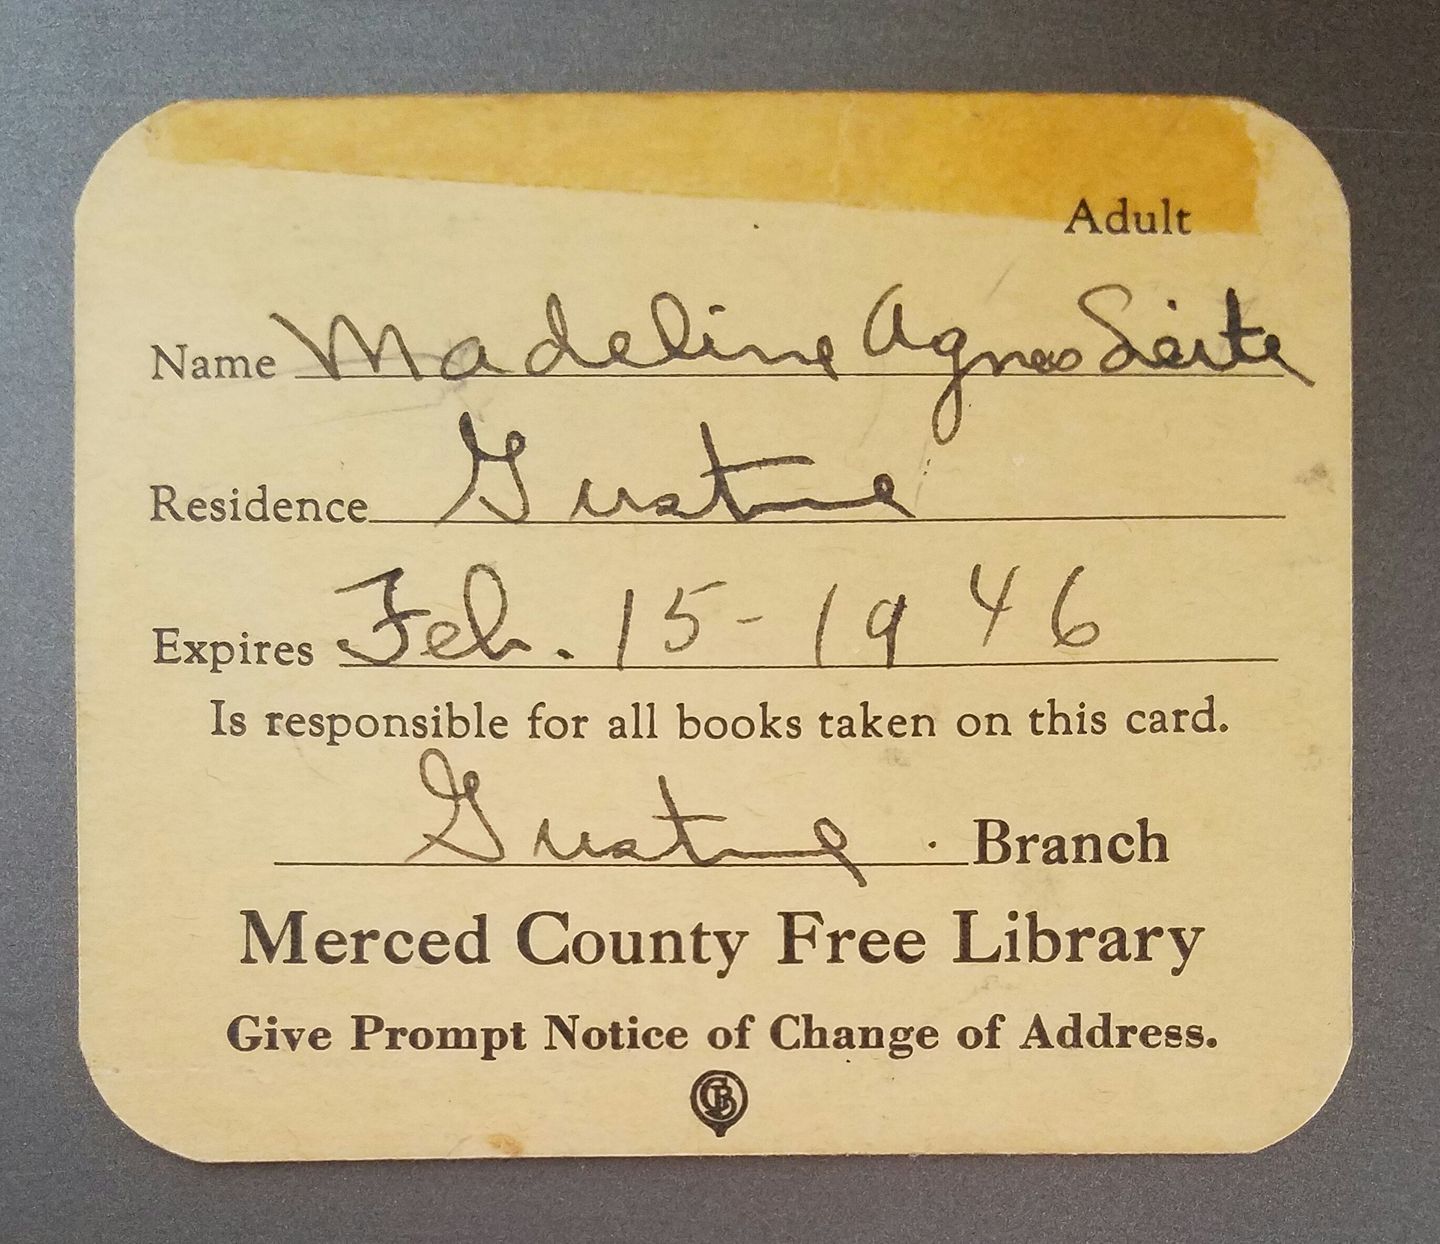 Adult
Name Madeline Agnes Leite
Residence Gustine
Expires Feb. 15-1946
Is responsible for all books taken on this card.
Gustine Branch
Merced County Free Library
Give Prompt Notice of Change of Address.